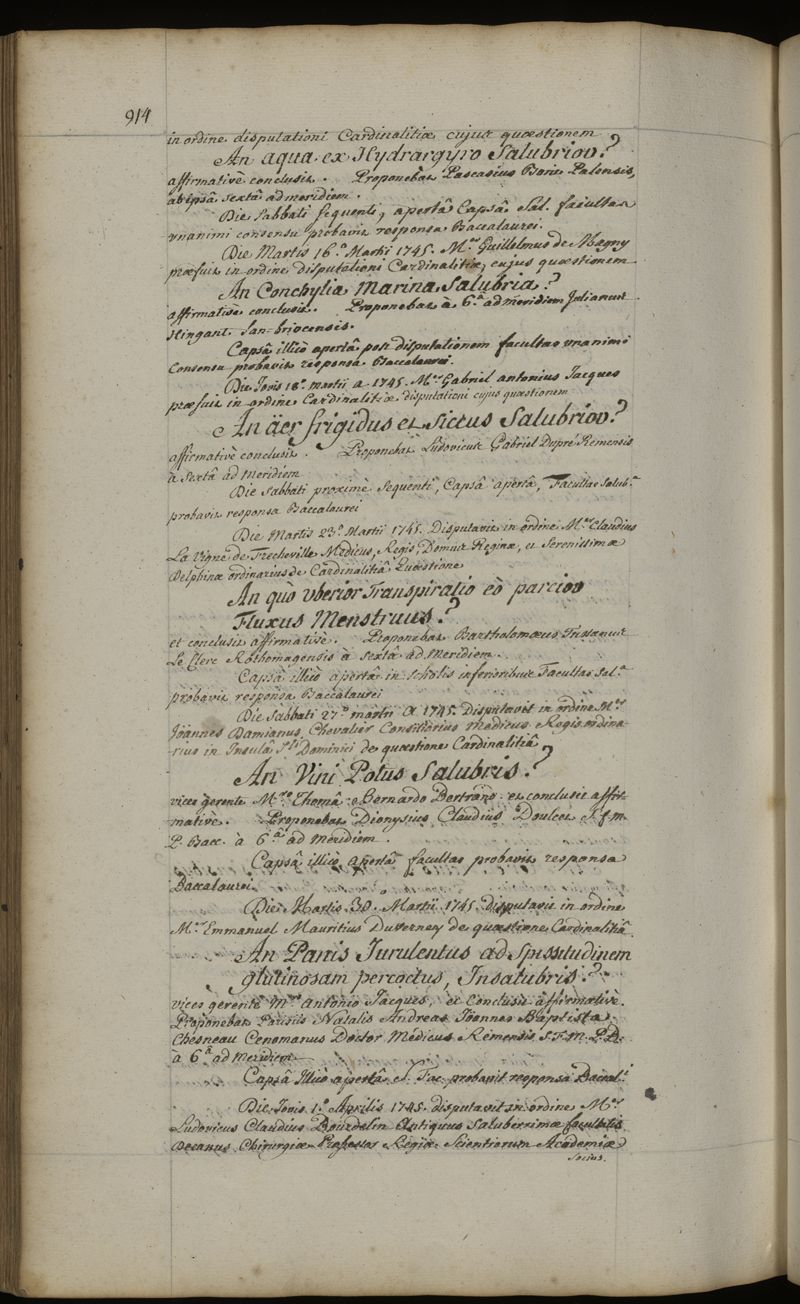 914
in ordine disputationi Cardinalitiæ cujus quæstionem
An aqua ex Hydrargyro Salubrior?
affirmativè conclusit. Proponebat Pascasius Borie Palensis,
ab ipsâ sextâ ad meridiem.
Die Sabbati sequenti, apertâ Capsâ Sal. facultas
unanimi consensu probavit responsa Baccalaurei.
Die Martis 16.ª Martii 1745. M.er Guillelmus de Magny
præfuit in ordine disputationi Cardinalitiæ, cujus quæstionem
An Conchylia Marina Salubria?
affirmative conclusit. Proponebat à 6.ª ad meridiem Julianus
Hingant San-briocensis.
Capsâ illicò apertâ post disputationem facultas unanimi
Consensu probavit responsa Baccalaurei.
Die Jovis 18.ª martii a 1745. M.er Gabriel antonius Jacques
præfuit in ordine Cardinalitiæ disputationi cujus quæstionem
An äer frigidus et siccus Salubrior?
affirmativè conclusit. Proponebat Ludovicus Gabriel Dupré Remensis
à Sextâ ad Meridiem
Die Sabbati proximè Sequenti, Capsâ apertâ, Facultas Salub.ª
probavit responsa Baccalaurei
Die Martis 23.ª Martii 1745. Disputavit in ordine M.er Claudius
La Vigne de Frecheville Medicus, Regis, Domus Reginæ, et Serenissimæ
Delphinæ ordinarius de Cardinalitiâ Quæstione
An quò uberior Transpiratio eò parcior
Fluxus Menstruus?
et conclusit affirmativè. Proponebat Bartholomæus Tussanus
Le Clerc Rothomagensis à sextâ ad meridiem.
Capsâ illicò apertâ in scholis inferioribus Facultas Sal.ª
probavit responsa Baccalaurei
Die Sabbati 27.ª martii a 1745. Disputavit in ordine M.er
Joannes Damianus Chevalier Consiliarius Medicus Regis ordina-
rius in Insulâ S.ti Dominici de quæstione Cardinalitiâ
An Vini Potus Salubris?
vices gerente M.ro Thomâ Bernardo Bertrand et conclusit affir-
mativè. Proponebat Dionysius Claudius Doulcet S f m
P. Bacc. à 6.ª ad Meridiem.
Capsâ illicò apertâ facultas probavit responsa
Baccalaurei
Die Martis 30. Martii 1745 disputavit in ordine
M.r Emmanuel Mauritius Duverney de quæstione Cardinalitiâ
An Panis Jurulentus ad Spissitudinem
glutinosam percoctus, Insalubris?
vices gerente M.ro antonio Jacques, et Conclusit affirmativè.
Proponebat Parisiis Natalis Andreas Joannes Baptista
Chesneau Cenomanus Doctor Medicus Remensis S.F.M.P.B.
à 6.ª ad Meridiem
Capsâ Illicò apertâ S. Fac. probavit responsa Baccal.i
Die Jovis 1.ª Aprilis 1745. disputavit in ordine M.er
Ludovicus Claudius Bourdelin Antiquus Saluberrimæ facultatis
Decanus Chirurgiæ Professor Regiæ Scientiarum Academiæ
Socius.